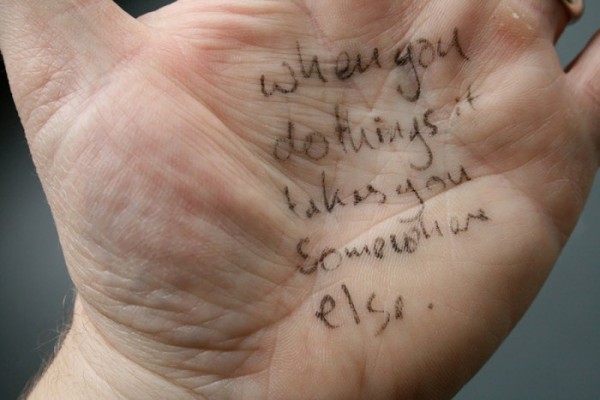 when you
do things it
takes you
Somewhere
else.